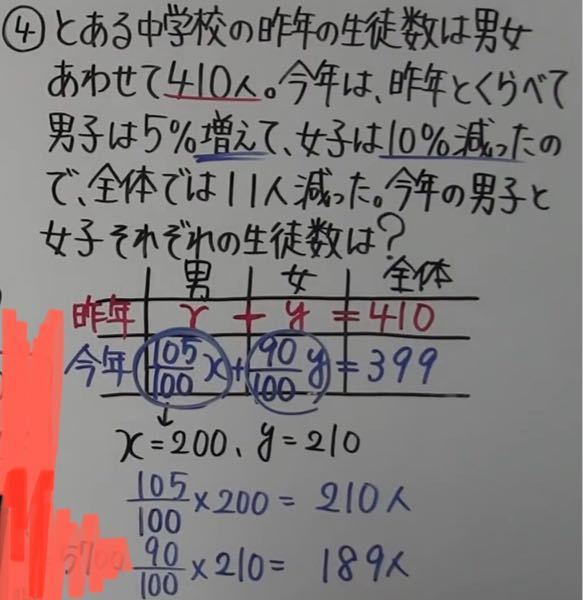 ④とある中学校の昨年の生徒数は男女
あわせて410人。今年は、昨年とくらべて
男子は5%増えて、女子は10%減ったの
で、全体では11人減った。今年の男子と
女子それぞれの生徒数は?
男 女 全体
昨年 x + y = 410
今年 105/100 x + 90/100 y = 399
x=200、y=210
105/100 × 200 = 210人
90/100 × 210 = 189人